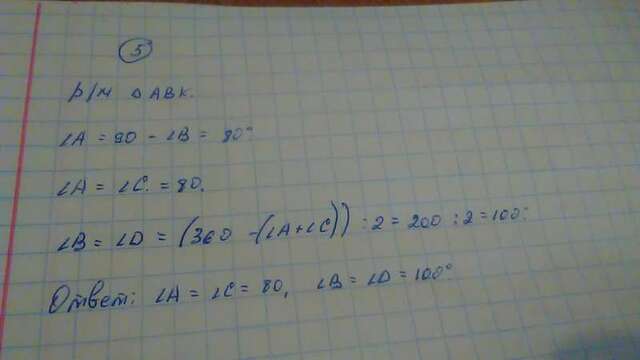 5
р/м △ABK.
∠A = 90 - ∠B = 80°
∠A = ∠C. = 80.
∠B = ∠D = (360 - (∠A+∠C)) : 2 = 200 : 2 = 100°
Ответ: ∠A = ∠C = 80, ∠B = ∠D = 100°